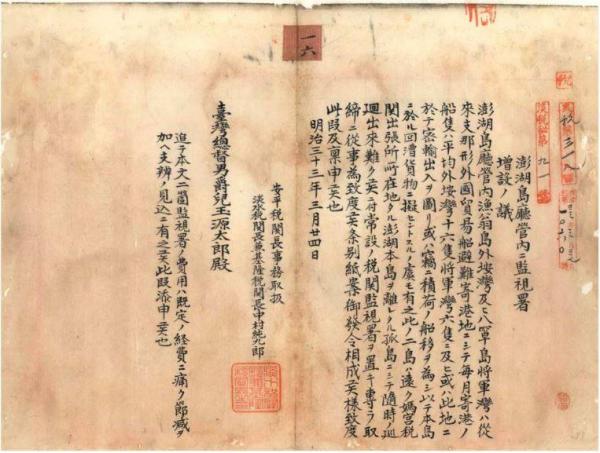 一六
澎湖島廳管内ニ監視署
増設ノ議
澎湖島廳管内漁翁島外垵灣及ヒ八罩島將軍灣ハ從
來支那形外國貿易船避難寄港地ニシテ毎月寄港ノ
船隻ハ平均外垵灣十六隻將軍灣六隻ニ及ヒ或ハ此地ニ
於テ密輸出入ヲ圖リ或ハ竊ニ積荷ノ船移ヲ為シ以テ本島
ニ於ル回漕貨物ニ擬セントスルノ虞モ有之此ノ二島ハ遠ク媽宮税
関出張所所在地タル澎湖本島ヲ離レタル孤島ニシテ隨時ノ巡
廻出來難ク候ニ付常設ノ税関監視署ヲ置キ専ラ取
締ニ從事為致度候条別紙案御發令相成候様致度
此段及稟申候也
明治三十三年三月廿四日
安平税関長事務取扱
淡水税関長兼基隆税関長中村純九郎
臺灣總督男爵兒玉源太郎殿
追テ本文二箇監視署ノ費用ハ既定ノ経費ニ痛ク節減ヲ
加ヘ支辨ノ見込ニ有之候此段添申候也